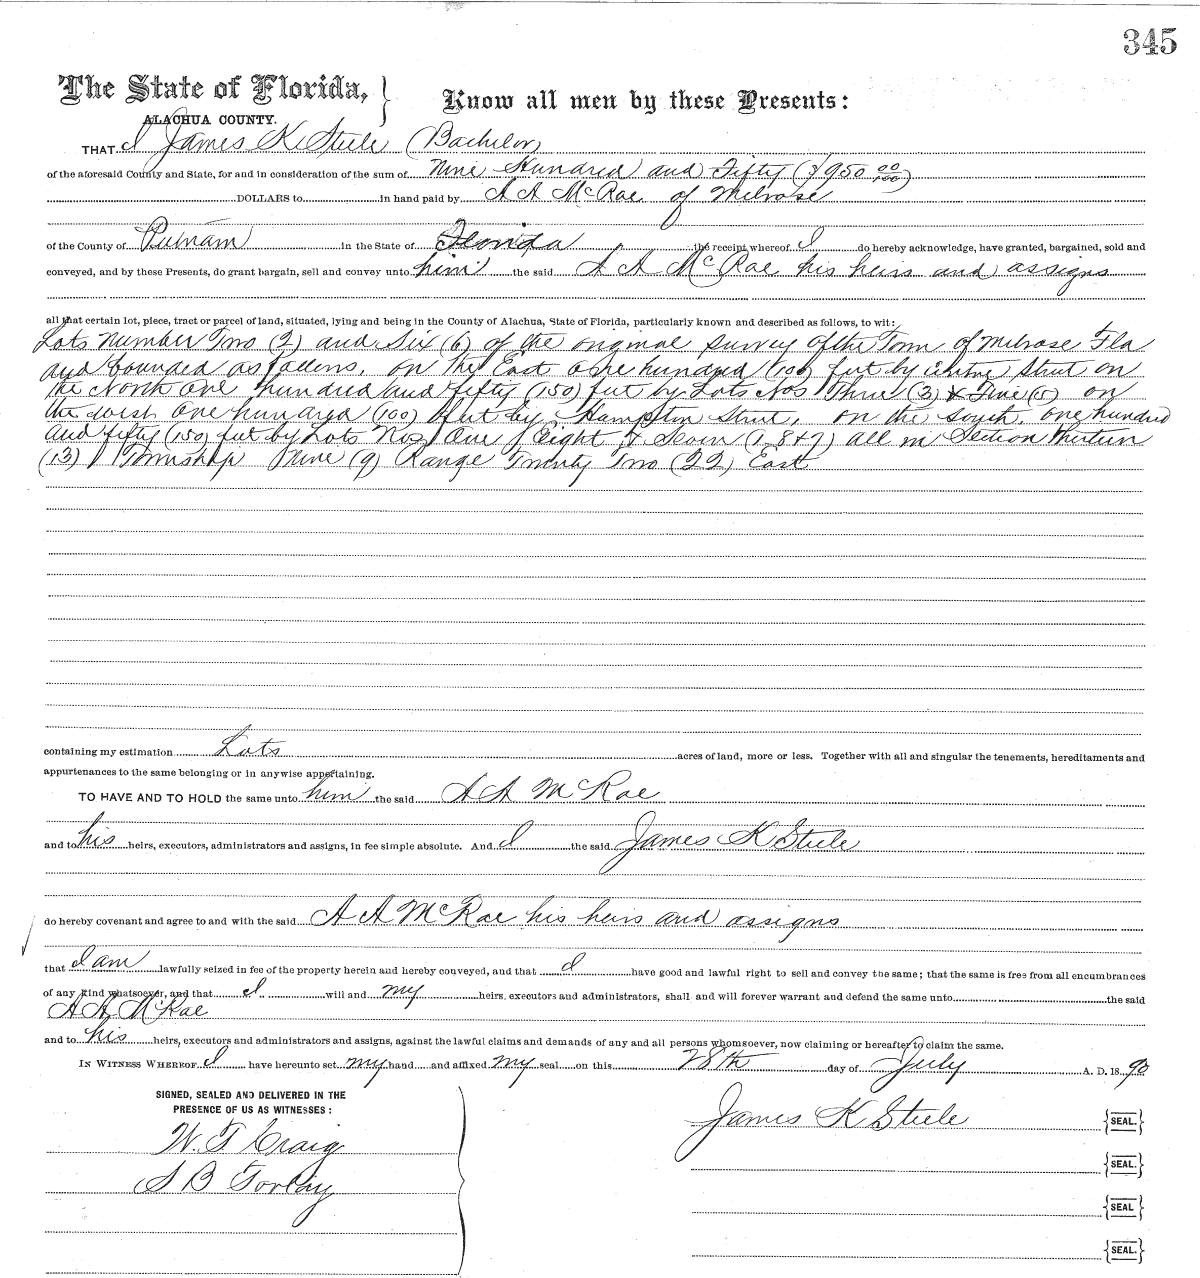 345
The State of Florida, } Know all men by these Presents:
ALACHUA COUNTY.
THAT I James K Steele (Bachelor)
of the aforesaid County and State, for and in consideration of the sum of Nine Hundred and Fifty ($950 00/100)
DOLLARS to in hand paid by A A McRae of Melrose
of the County of Putnam in the State of Florida the receipt whereof I do hereby acknowledge, have granted, bargained, sold and
conveyed, and by these Presents, do grant bargain, sell and convey unto him the said A A McRae his heirs and assigns
all that certain lot, piece, tract or parcel of land, situated, lying and being in the County of Alachua, State of Florida, particularly known and described as follows, to wit:
Lots Number Two (2) and Six (6) of the original survey of the Town of Melrose Fla
and bounded as follows, on the East one hundred (100) feet by Centre Street on
the North one hundred and fifty (150) feet by Lots Nos Three (3) & Five (5) on
the west one hundred (100) feet by Hampton Street, on the south, one hundred
and fifty (150) feet by Lots Nos One Eight & Seven (1-8&7) all in Section Thirteen
(13) Township Nine (9) Range Twenty Two (22) East
containing my estimation Lots acres of land, more or less. Together with all and singular the tenements, hereditaments and
appurtenances to the same belonging or in anywise appertaining.
TO HAVE AND TO HOLD the same unto him the said A A McRae
and to his heirs, executors, administrators and assigns, in fee simple absolute. And I the said James K Steele
do hereby covenant and agree to and with the said A A McRae his heirs and assigns
that I am lawfully seized in fee of the property herein and hereby conveyed, and that I have good and lawful right to sell and convey the same; that the same is free from all encumbrances
of any kind whatsoever, and that I will and my heirs, executors and administrators, shall and will forever warrant and defend the same unto the said
A A McRae
and to his heirs, executors and administrators and assigns, against the lawful claims and demands of any and all persons whomsoever, now claiming or hereafter to claim the same.
IN WITNESS WHEREOF I have hereunto set my hand and affixed my seal on this 28th day of July A. D. 1890
SIGNED, SEALED AND DELIVERED IN THE
PRESENCE OF US AS WITNESSES:
James K Steele {SEAL.}
W. T. Craig
{SEAL.}
S B
{SEAL}
{SEAL.}